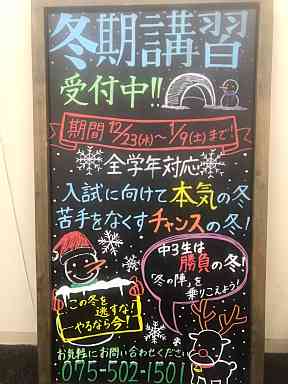 冬期講習
受付中!!
期間 12/23(水)～1/9(土)まで!
全学年対応
入試に向けて本気の冬
苦手をなくすチャンスの冬!
中3生は
勝負の冬!
「冬の陣」を
乗りこえよう!
この冬を
逃すな!
やるなら今!
お気軽にお問い合わせください
075-502-1501